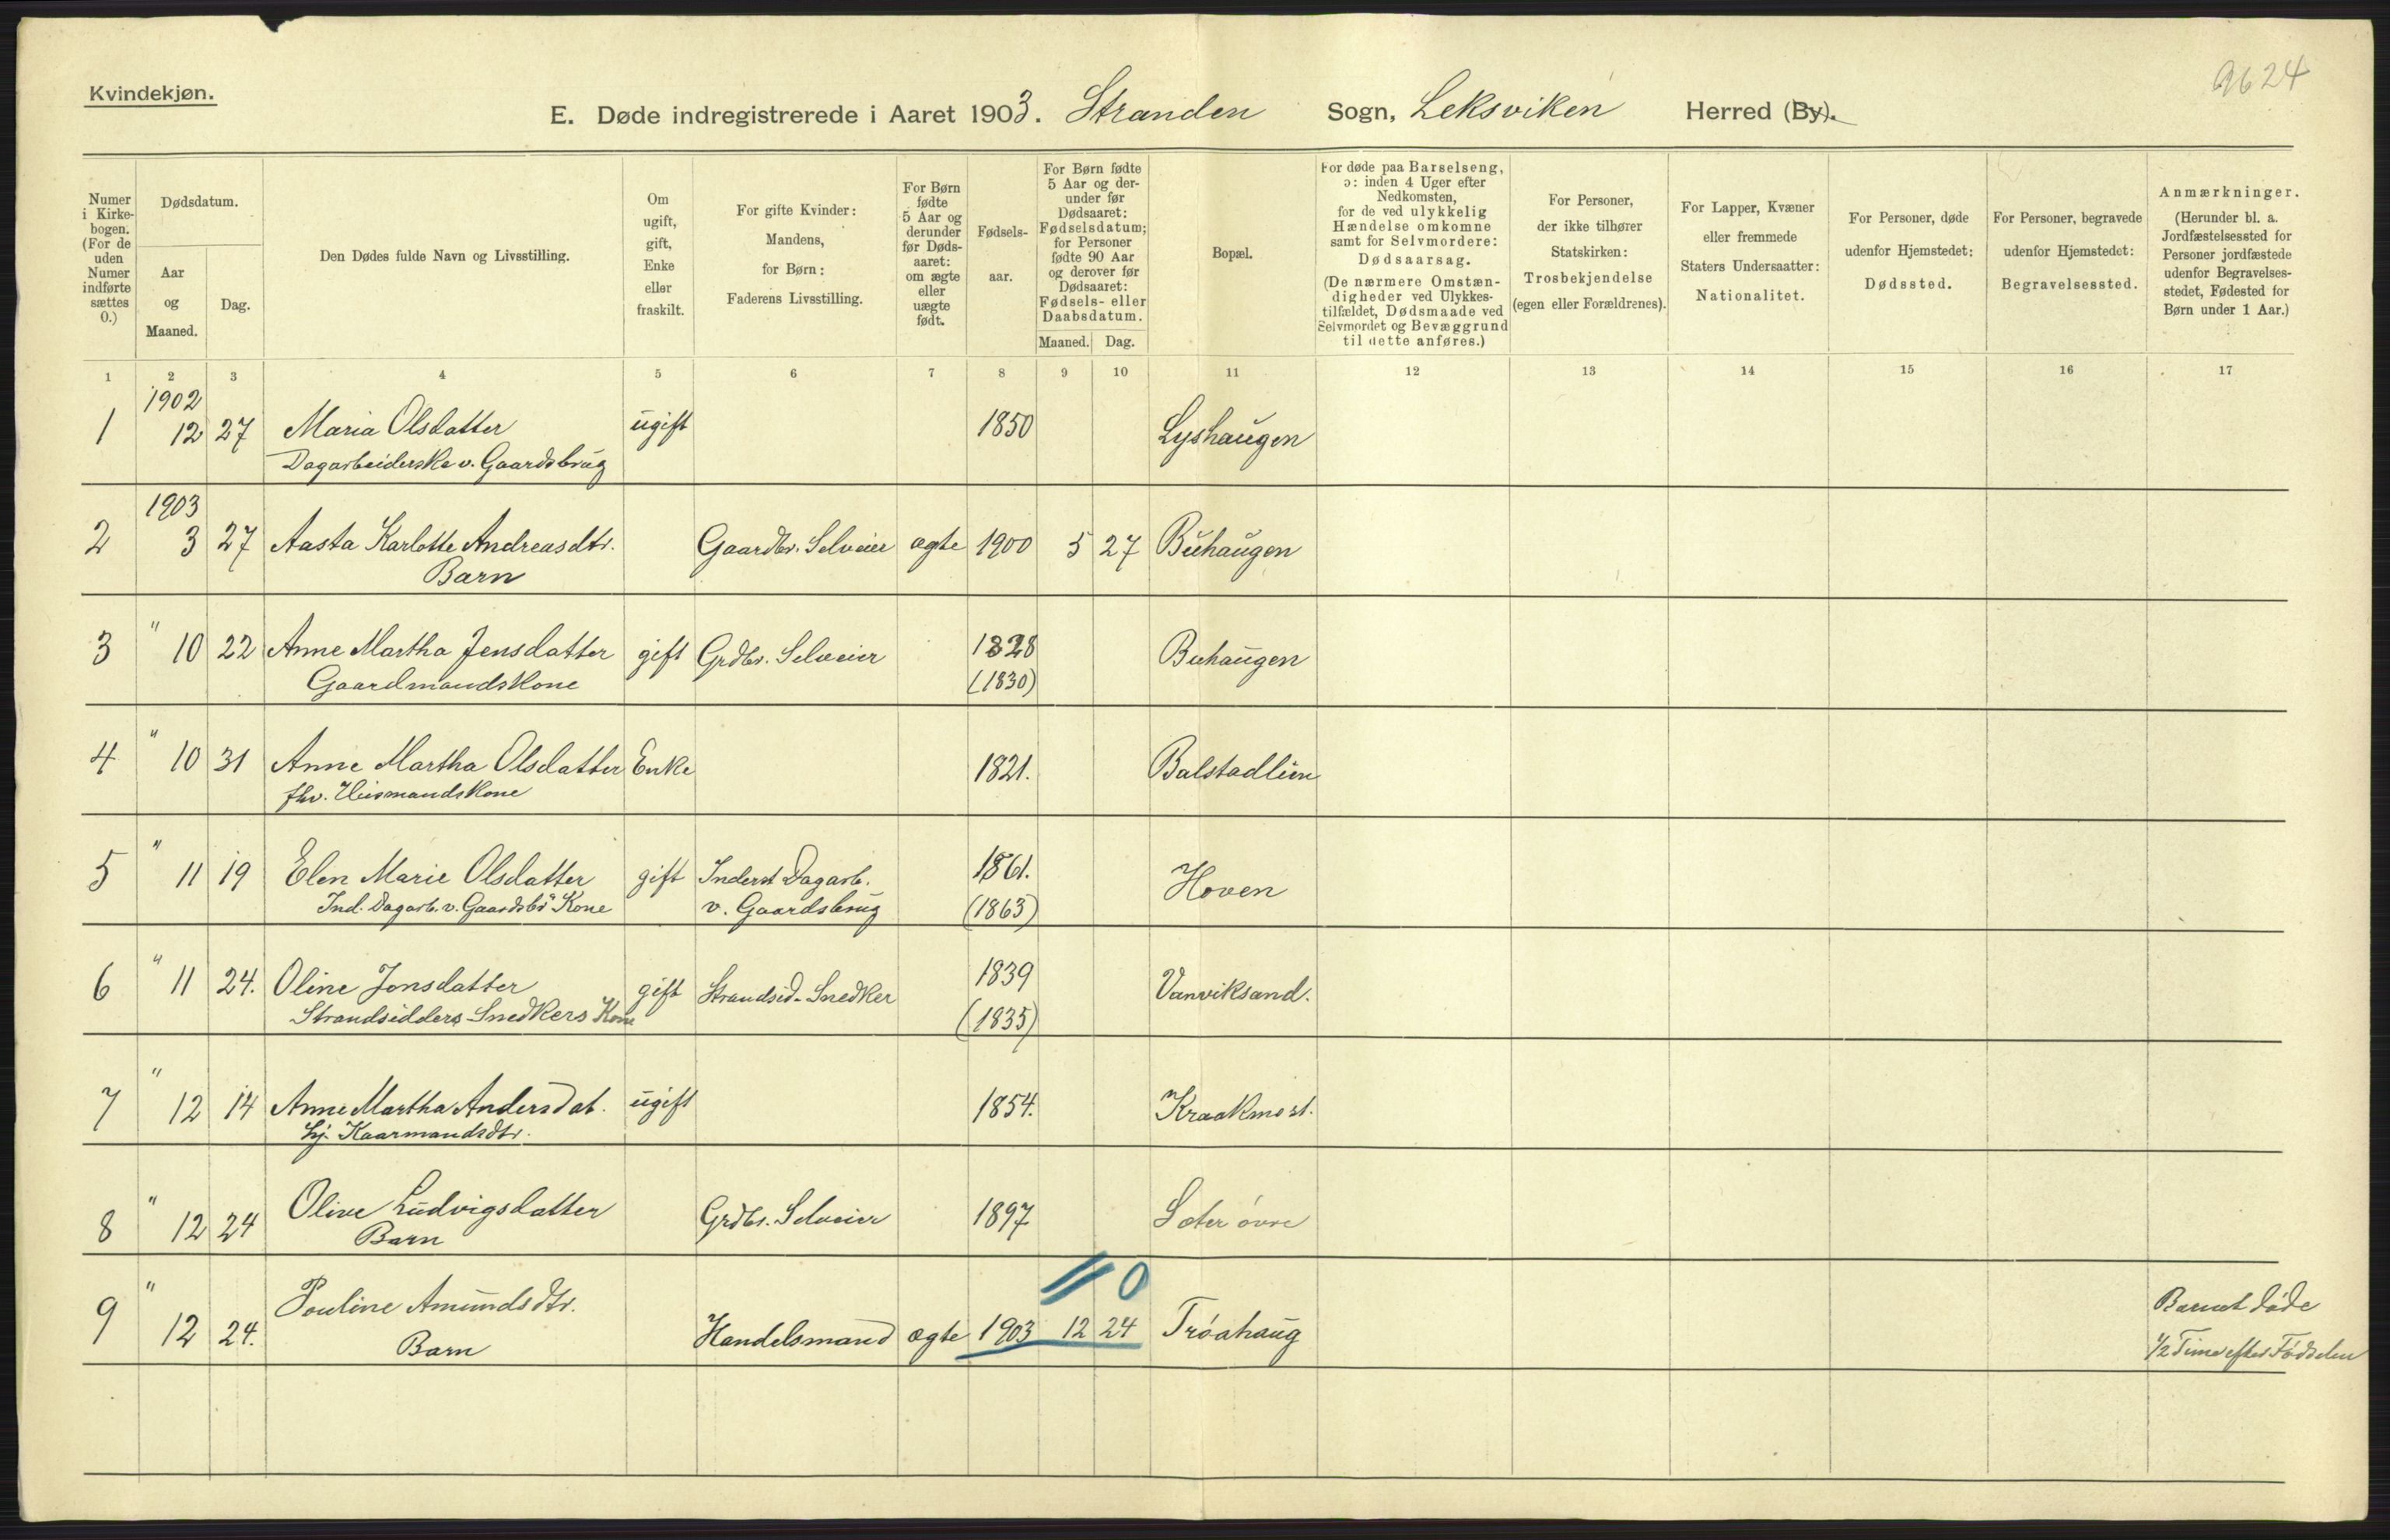 Kvindekjøn.
2624
E. Døde indregistrerede i Aaret 1903. Stranden Sogn, Leksviken Herred (By).
Numer i Kirkebogen. (For de uden Numer indførte sættes 0.)
Dødsdatum.
Aar og Maaned.
Dag.
Den Dødes fulde Navn og Livsstilling.
Om ugift, gift, Enke eller fraskilt.
For gifte Kvinder: Mandens, for Børn: Faderens Livsstilling.
For Børn fødte 5 Aar og derunder før Dødsaaret: om ægte eller uægte født.
Fødselsaar.
For Børn fødte 5 Aar og derunder før Dødsaaret: Fødselsdatum; for Personer fødte 90 Aar og derover før Dødsaaret: Fødsels- eller Daabsdatum.
Maaned. Dag.
Bopæl.
For døde paa Barselseng, ɔ: inden 4 Uger efter Nedkomsten, for de ved ulykkelig Hændelse omkomne samt for Selvmordere: Dødsaarsag. (De nærmere Omstændigheder ved Ulykkestilfældet, Dødsmaade ved Selvmordet og Bevæggrund til dette anføres.)
For Personer, der ikke tilhører Statskirken: Trosbekjendelse (egen eller Forældrenes).
For Lapper, Kvæner eller fremmede Staters Undersaatter: Nationalitet.
For Personer, døde udenfor Hjemstedet: Dødssted.
For Personer, begravede udenfor Hjemstedet: Begravelsessted.
Anmærkninger. (Herunder bl. a. Jordfæstelsessted for Personer jordfæstede udenfor Begravelsesstedet, Fødested for Børn under 1 Aar.)
1 2 3 4 5 6 7 8 9 10 11 12 13 14 15 16 17
1902
1 12 27 Maria Olsdatter ugift 1850 Lyshaugen
Dagarbeiderske v. Gaardsbrug
1903
2 3 27 Aasta Karlotte Andreasdtr. Gaardbr. Selveier ægte 1900 5 27 Buhaugen
Barn
3 " 10 22 Anne Martha Jensdatter gift Grdbr. Selveier 1828 Buhaugen
Gaardmandskone (1830)
4 " 10 31 Anne Martha Olsdatter Enke 1821. Balstadlien
fhv. Husmandskone
5 " 11 19 Elen Marie Olsdatter gift Inderst Dagarb. 1861. Hoven
Ind. Dagarb. v. Gaardsbr Kone v. Gaardsbrug (1863)
6 " 11 24. Oline Jonsdatter gift Strandsid. Snedker 1839 Vanviksand.
Strandsidders Snedkers Kone (1835)
7 " 12 14 Anne Martha Andersdat. ugift 1854. Kraakmost.
Kaarmandsdtr.
8 " 12 24 Olive Ludvigsdatter Grdbr. Selveier 1897 Sæter övre
Barn
11 0
9 " 12 24. Pouline Amundsdtr. Handelsmand ægte 1903 12 24 Tröahaug Barnet döde
Barn ½ Time efter Födselen